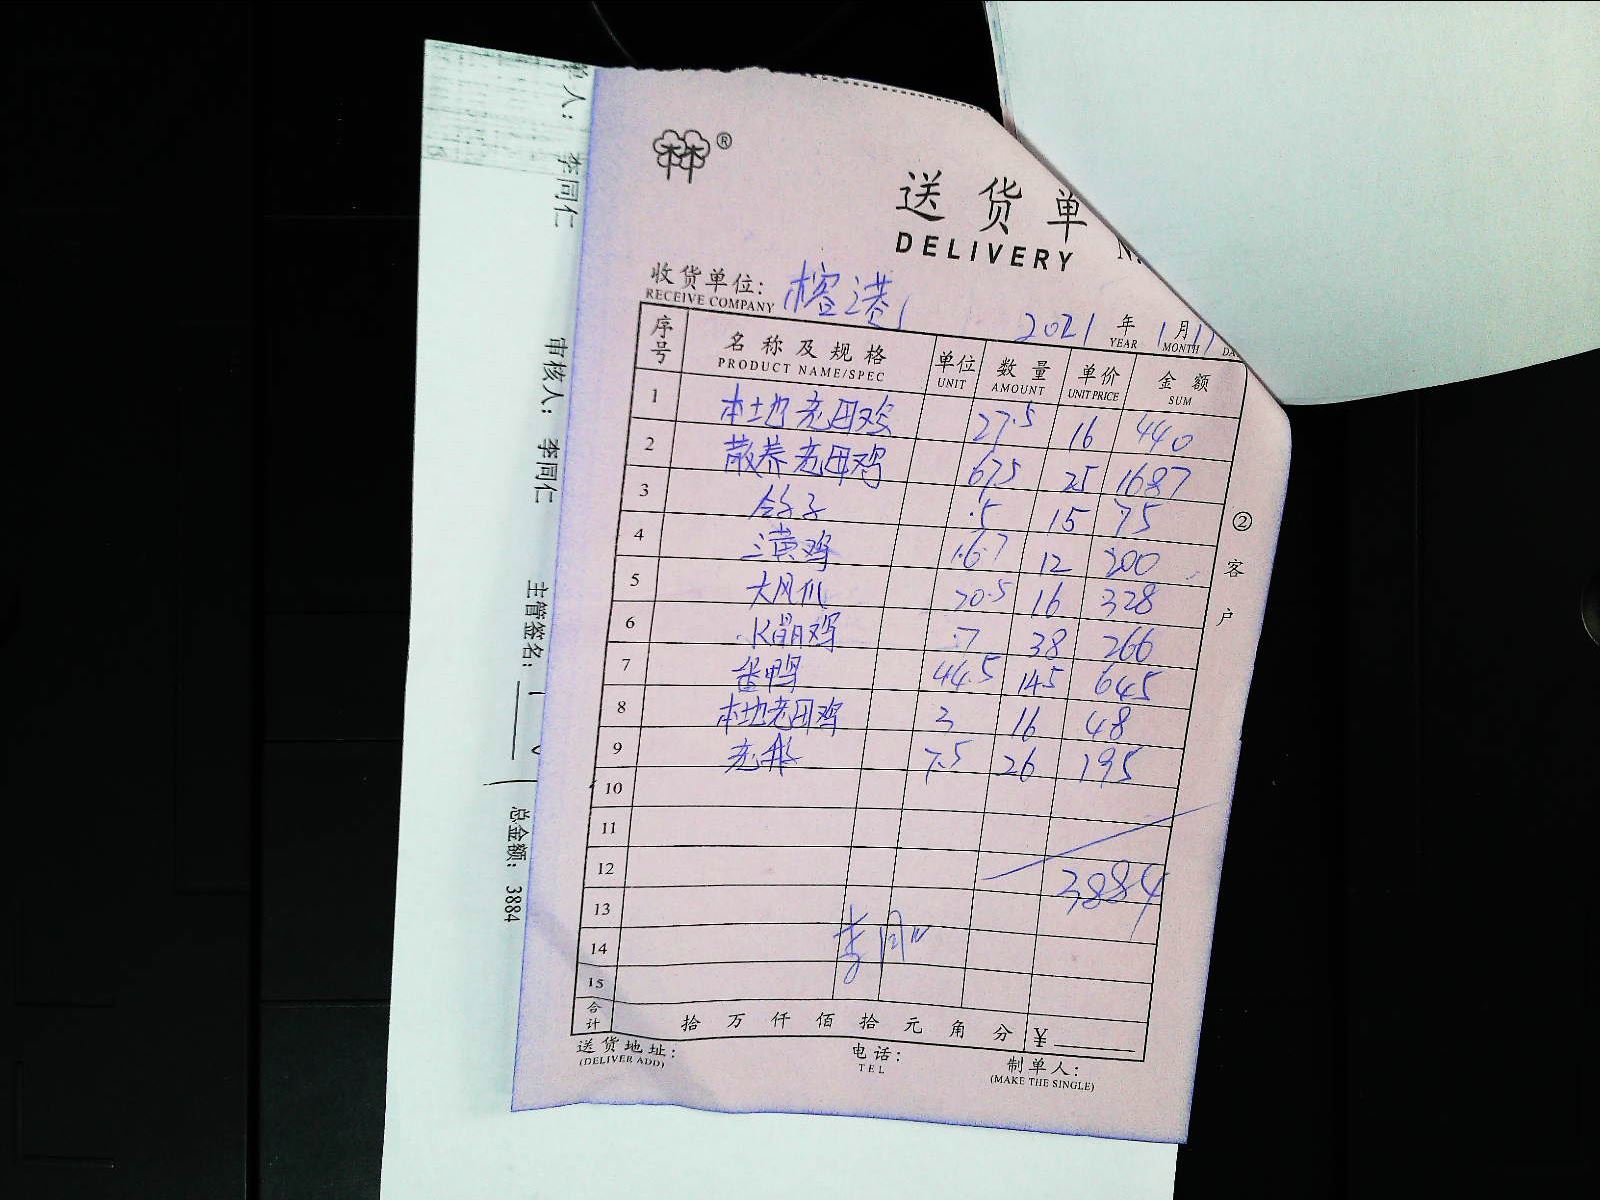 ®
送货单
DELIVERY
收货单位: 榕港
RECEIVE COMPANY
2021 年 1 月 11
YEAR MONTH
序号 名称及规格 单位 数量 单价 金额
PRODUCT NAME/SPEC UNIT AMOUNT UNIT PRICE SUM
1 本地老母鸡 27.5 16 440
2 散养老母鸡 67.5 25 1687
3 鸽子 5 15 75
4 三黄鸡 16.7 12 200
5 大凤爪 20.5 16 328
6 鸡 7 38 266
7 番鸭 44.5 145 645
8 本地老母鸡 3 16 48
9 7.5 26 195
10
11
12 3884
13
14
15
合计 拾 万 仟 佰 拾 元 角 分 ¥
送货地址: 电话: 制单人:
(DELIVER ADD) TEL (MAKE THE SINGLE)
② 客户
人: 李同仁
审核人: 李同仁
主管签名:
总金额: 3884